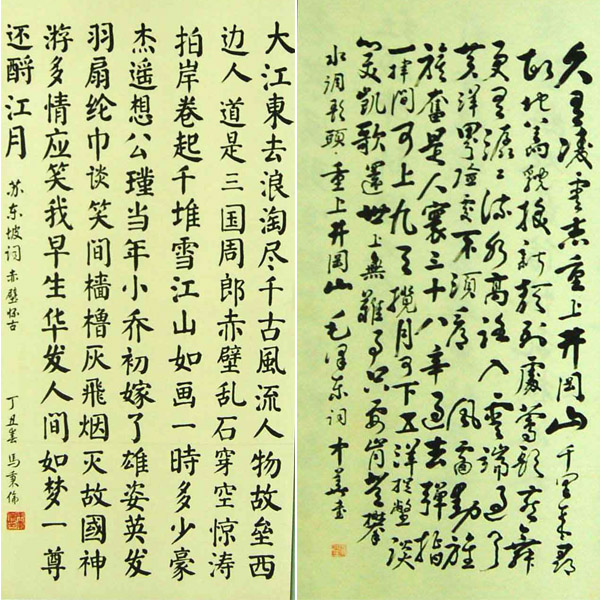 大江東去浪淘尽千古風流人物故垒西
边人道是三国周郎赤壁乱石穿空惊涛
拍岸卷起千堆雪江山如画一時多少豪
杰遥想公瑾当年小乔初嫁了雄姿英发
羽扇纶巾谈笑间樯橹灰飛烟灭故國神
游多情应笑我早生华发人间如梦一尊
还酹江月
苏东坡词赤壁怀古
丁丑春马
久有凌雲志重上井岡山千里来尋
故地舊貌換新顔到處鶯歌燕舞
更有潺々流水高路入雲端過了
黄洋界險處不須看風雷動旌
旗奮是人寰三十八年過去彈指
一揮间可上九天攬月可下五洋捉鳖談
笑凯歌還世上無難事只要肯登攀
水调歌頭·重上井岡山毛澤东词